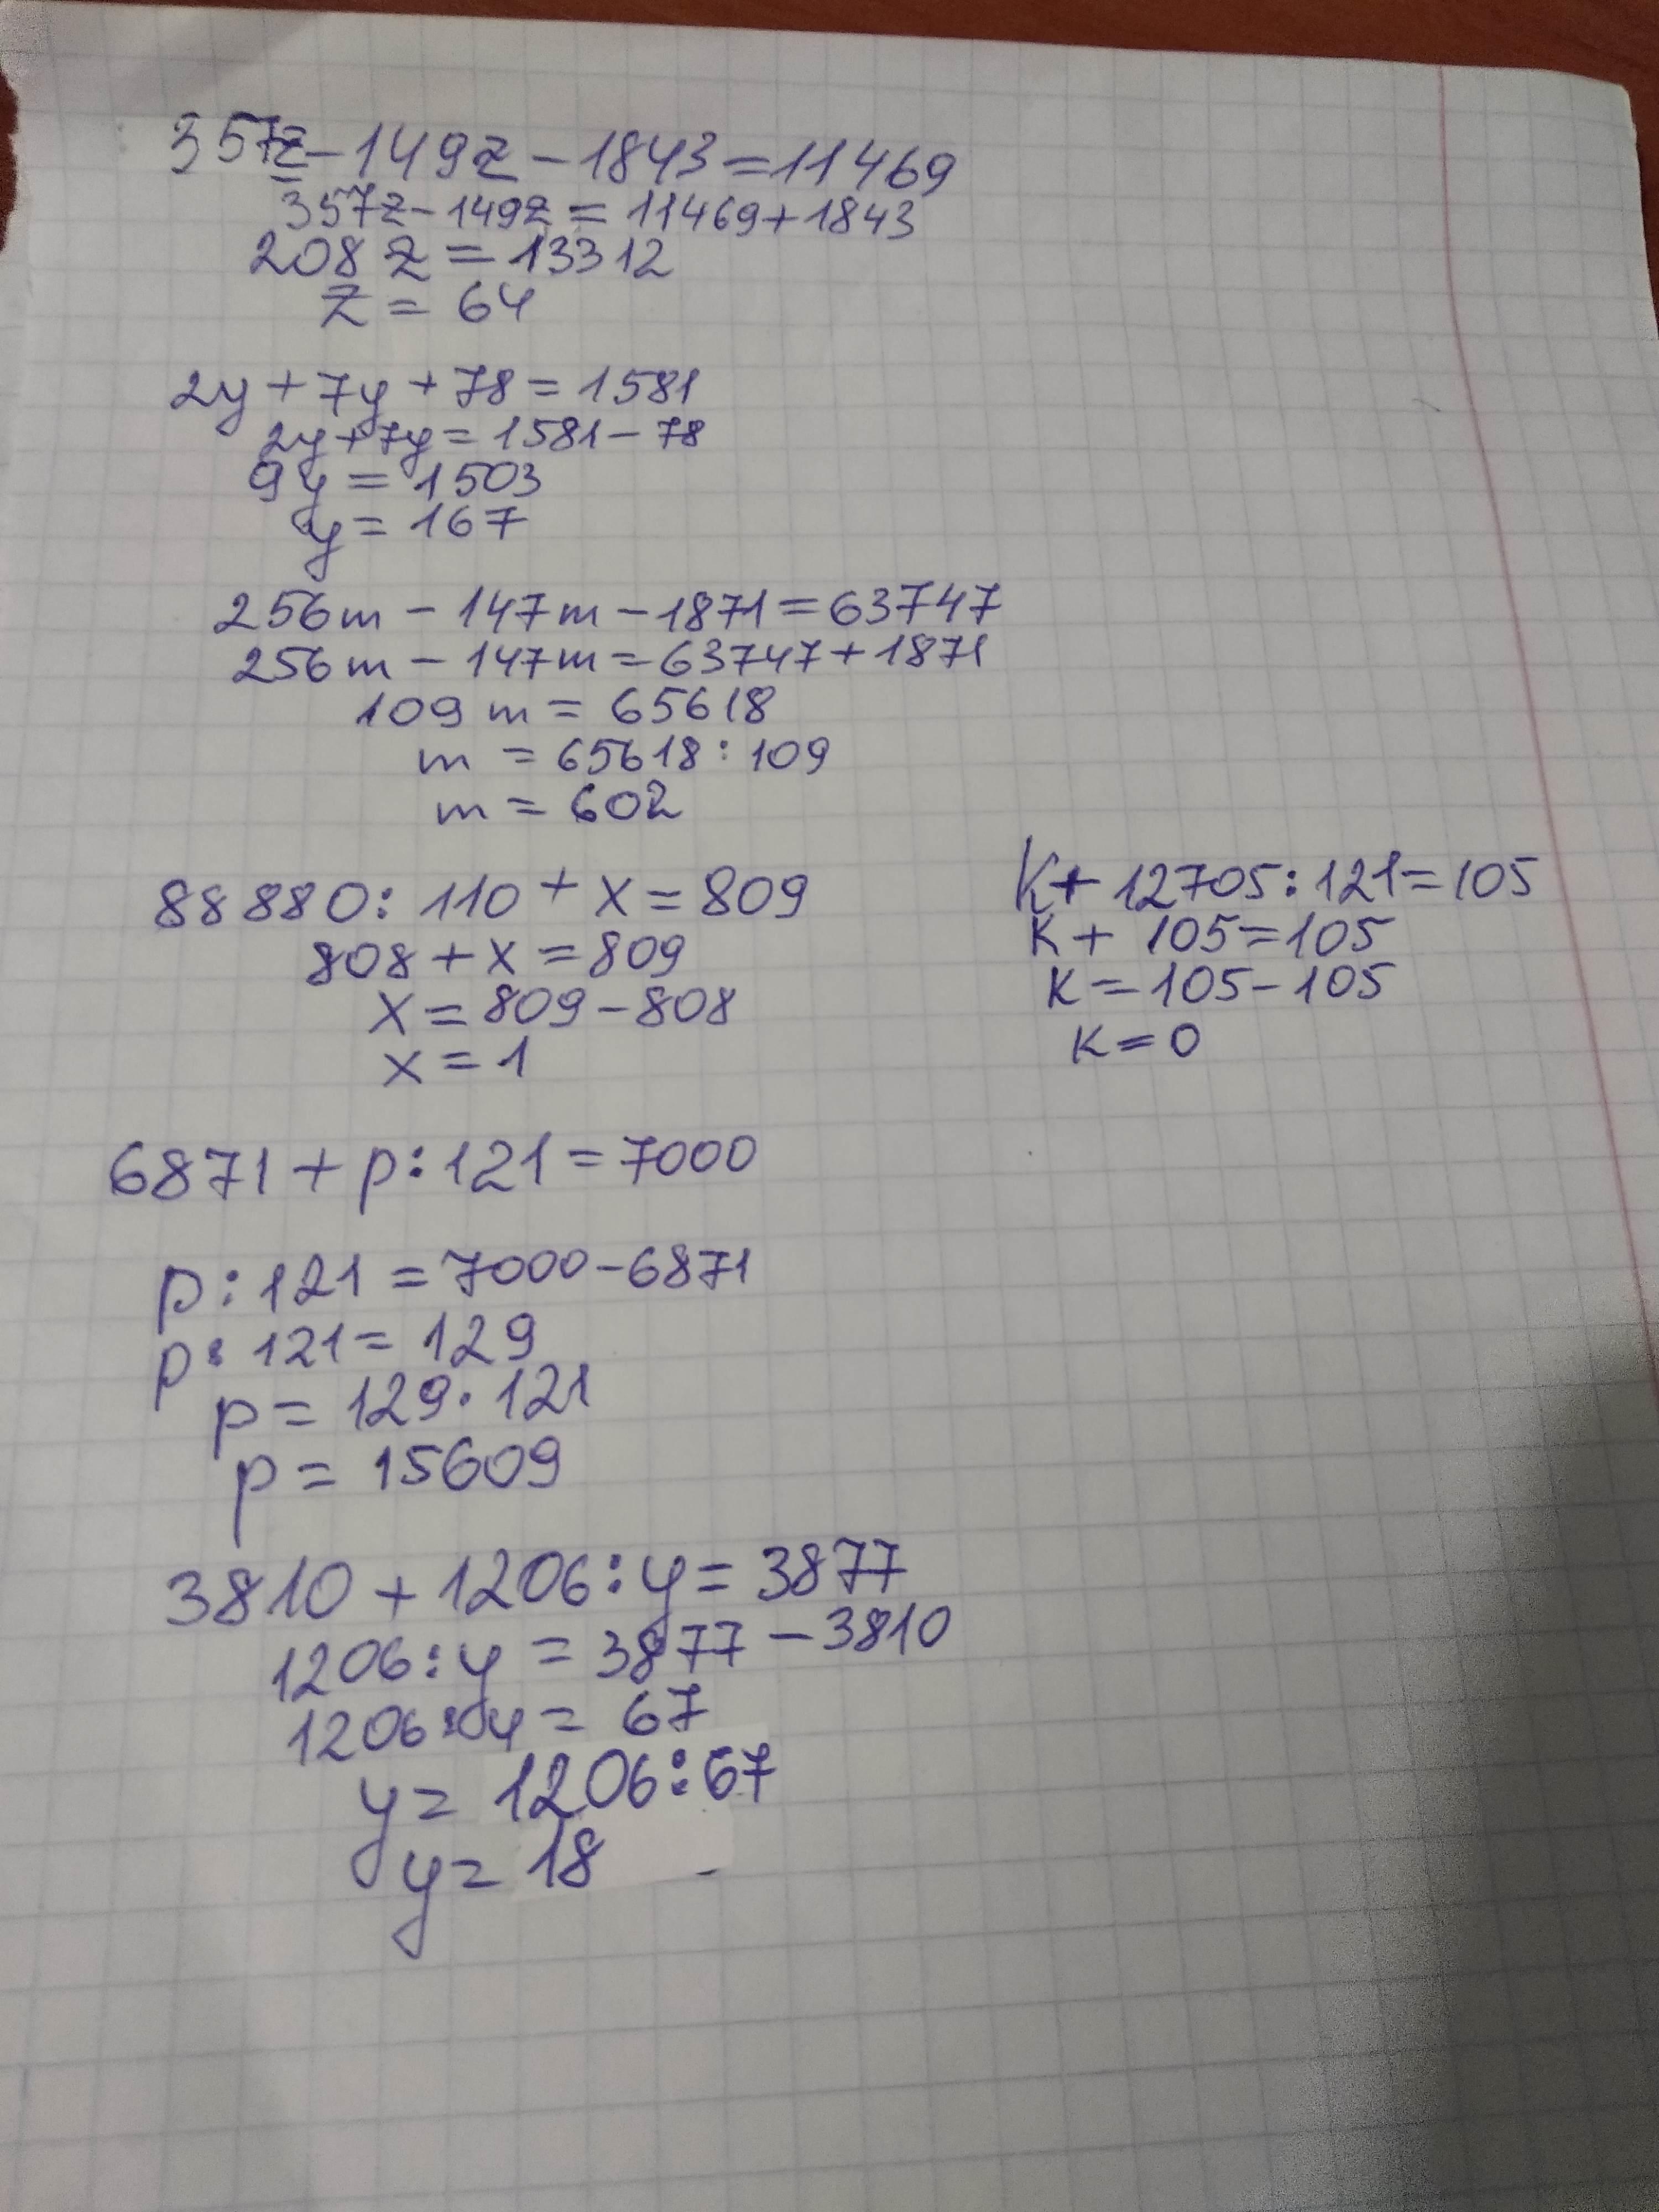 357z-149z-1843=11469
357z-149z=11469+1843
208z=13312
z=64
2y+7y+78=1581
2y+7y=1581-78
9y=1503
y=167
256m-147m-1871=63747
256m-147m=63747+1871
109m=65618
m=65618:109
m=602
88880:110+x=809
808+x=809
x=809-808
x=1
K+12705:121=105
K+105=105
K=105-105
K=0
6871+p:121=7000
p:121=7000-6871
p:121=129
p=129·121
p=15609
3810+1206:y=3877
1206:y=3877-3810
1206:y=67
y=1206:67
y=18